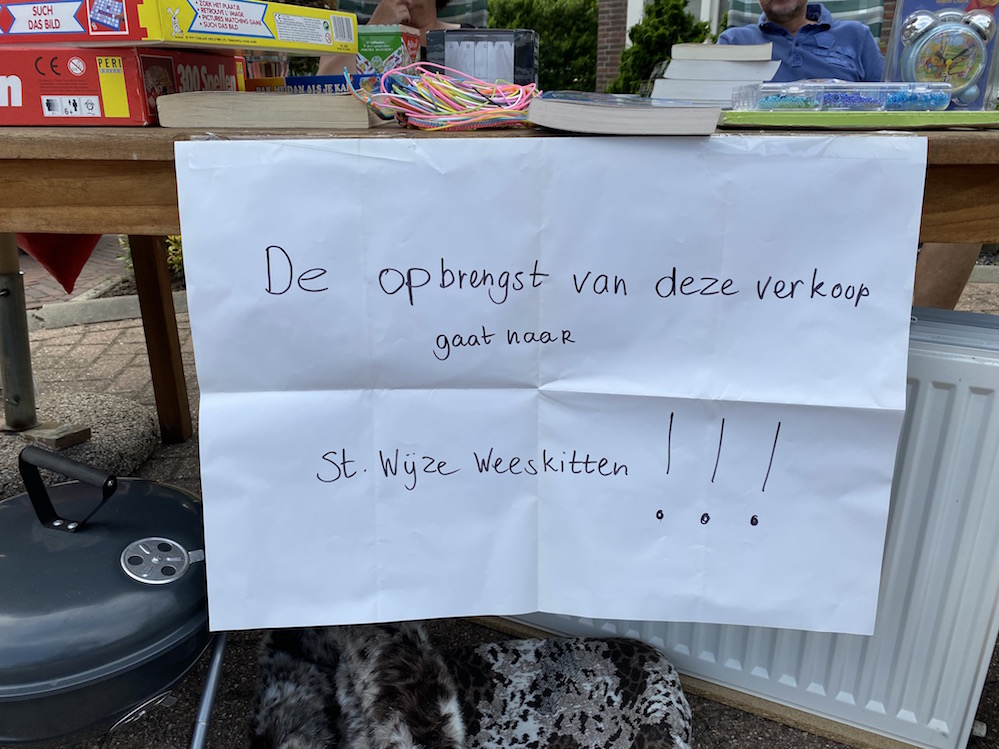 SUCH
DAS BILD
• ZOEK HET PLAATJE
• RETROUVE L'IMAGE
• PICTURES MATCHING GAME
• SUCH DAS BILD
CE
PERI
300 Spellen
6+
De opbrengst van deze verkoop
gaat naar
St. Wijze Weeskitten !!!